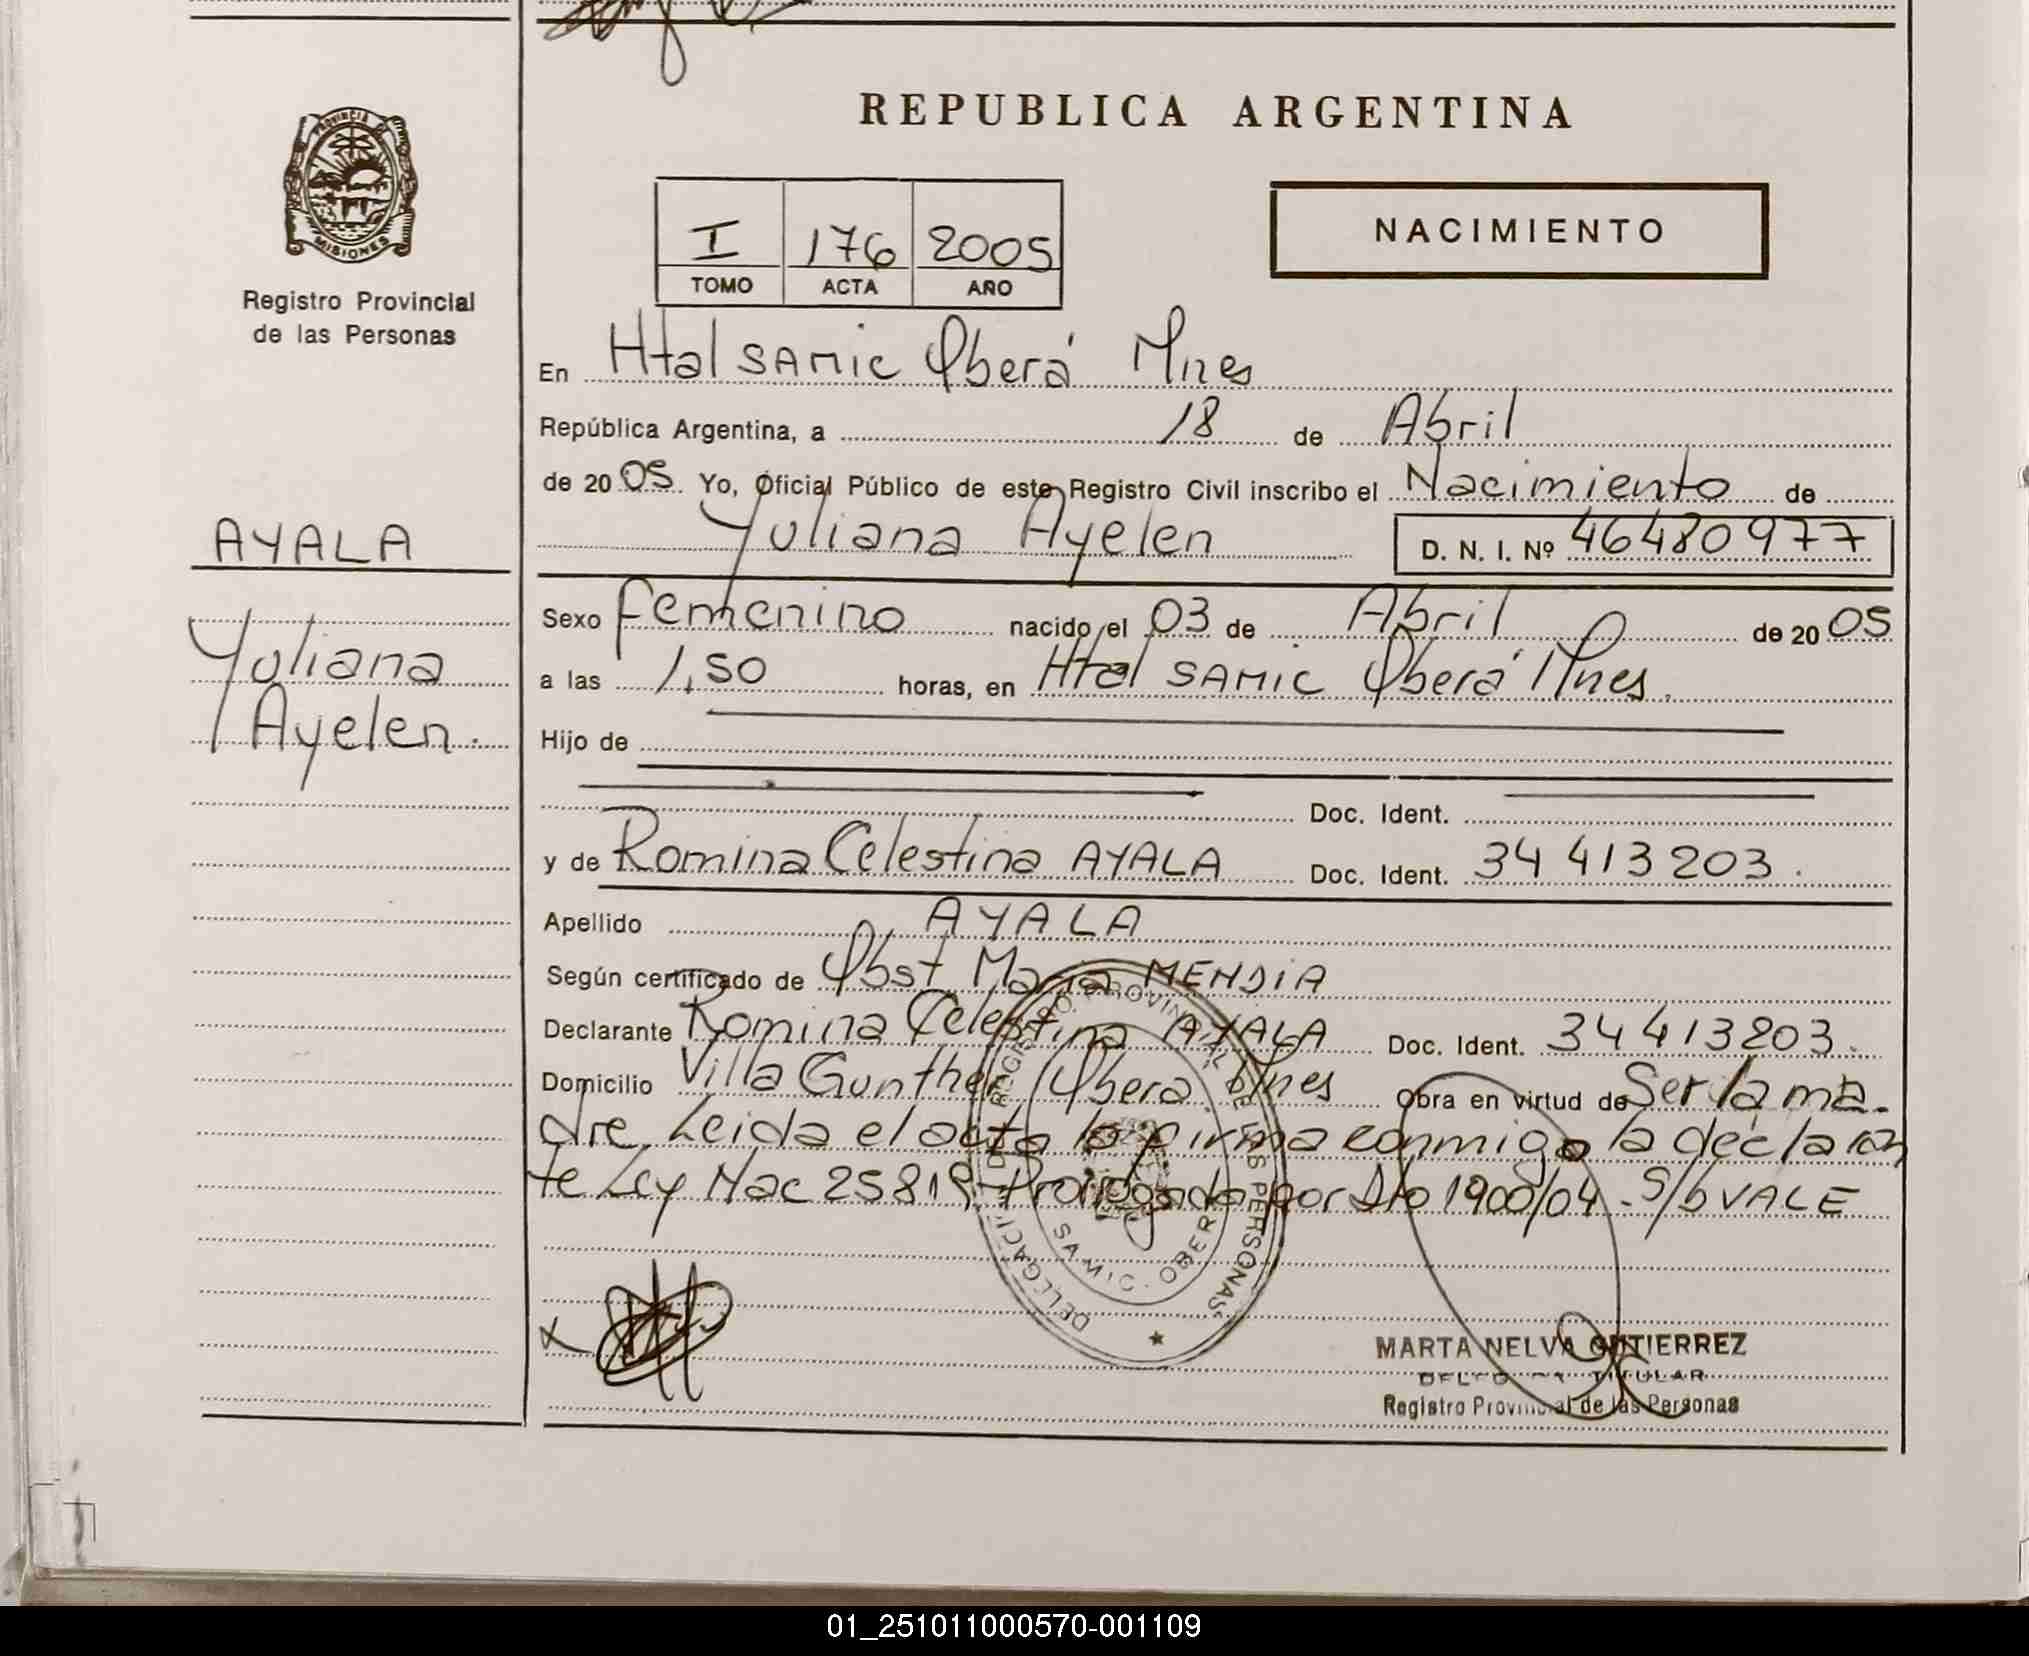 REPUBLICA ARGENTINA
PROVINCIA DE MISIONES
Registro Provincial
de las Personas
I 176 2005
TOMO ACTA AÑO
NACIMIENTO
En Htal SAMIC Oberá Mnes
República Argentina, a 18 de Abril
de 2005. Yo, Oficial Público de este Registro Civil inscribo el Nacimiento de
Yuliana Ayelen D. N. I. Nº 46480977
AYALA
Yuliana
Ayelen.
Sexo Femenino nacido el 03 de Abril de 2005
a las 1,50 horas, en Htal SAMIC Oberá Mnes.
Hijo de
Doc. Ident.
y de Romina Celestina AYALA Doc. Ident. 34 413 203.
Apellido AYALA
Según certificado de Obst Maria MENDIA
Declarante Romina Celestina AYALA Doc. Ident. 34 413203.
Domicilio Villa Gunther Obera. Mnes Obra en virtud de Ser la ma-
dre. Leida el acta la firma conmigo la declaran
te Ley Nac 25819 Prorrogada por Dto 1900/04 - S/b VALE
DELEGACION REGISTRO PROVINCIAL DE LAS PERSONAS
SAMIC - OBERA
MARTA NELVA GUTIERREZ
DELEGADA TITULAR
Registro Provincial de las Personas
01_251011000570-001109